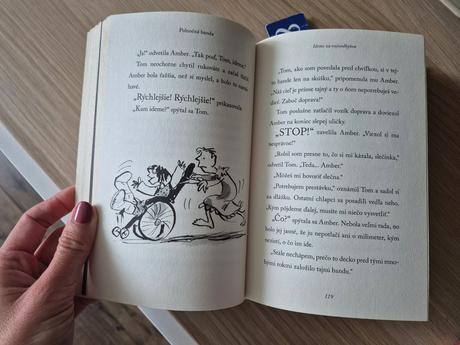 Polnočná banda
"Ja!" odvetila Amber. "Tak poď, Tom, ideme."
Tom neochotne chytil rukoväte a začal tlačiť.
Amber bola ťažšia, než si myslel, a bolo to
havé.
"Rýchlejšie! Rýchlejšie!" prikazovala
"Kam ideme?" spýtal sa Tom.
Ideme za vojvodkyňou
"Tom, ako som povedala pred chvíľkou, si v tej-
to bande len na skúšku," pripomenula mu Amber.
"Náš cieľ je prísne tajný a ty o ňom nepotrebuješ ve-
dieť. Zaboč doprava!"
Tom poslušne natlačil vozík doprava a doviezol
Amber na koniec slepej uličky.
"STOP!" zavelila Amber. "Viezol si ma
nesprávne!"
"Robil som presne to, čo si mi kázala, slečinka,"
odvetil Tom. "Teda... Amber."
"Môžeš mi hovoriť slečna."
"Potrebujem prestávku," oznámil Tom a sadol si
na dlážku. Ostatní chlapci sa posadili vedľa neho.
"Kým pôjdeme ďalej, musíte mi niečo vysvetliť."
"Čo?" spýtala sa Amber. Nebola veľmi rada, no
bolo jej jasné, že ju nepotlačí ani o milimeter, kým
nezistí, o čo im ide.
"Stále nechápem, prečo to decko pred tými mno-
hými rokmi založilo tajnú bandu."
129